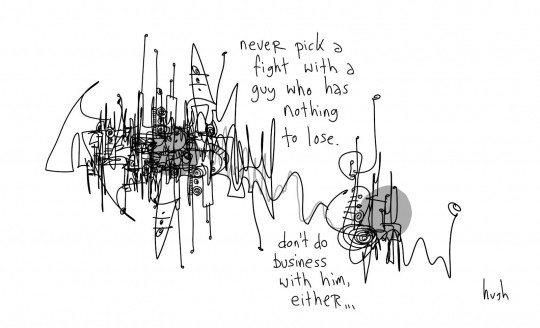 never pick a
fight with a
guy who has
nothing
to lose.
don't do
business
with him,
either...
hugh